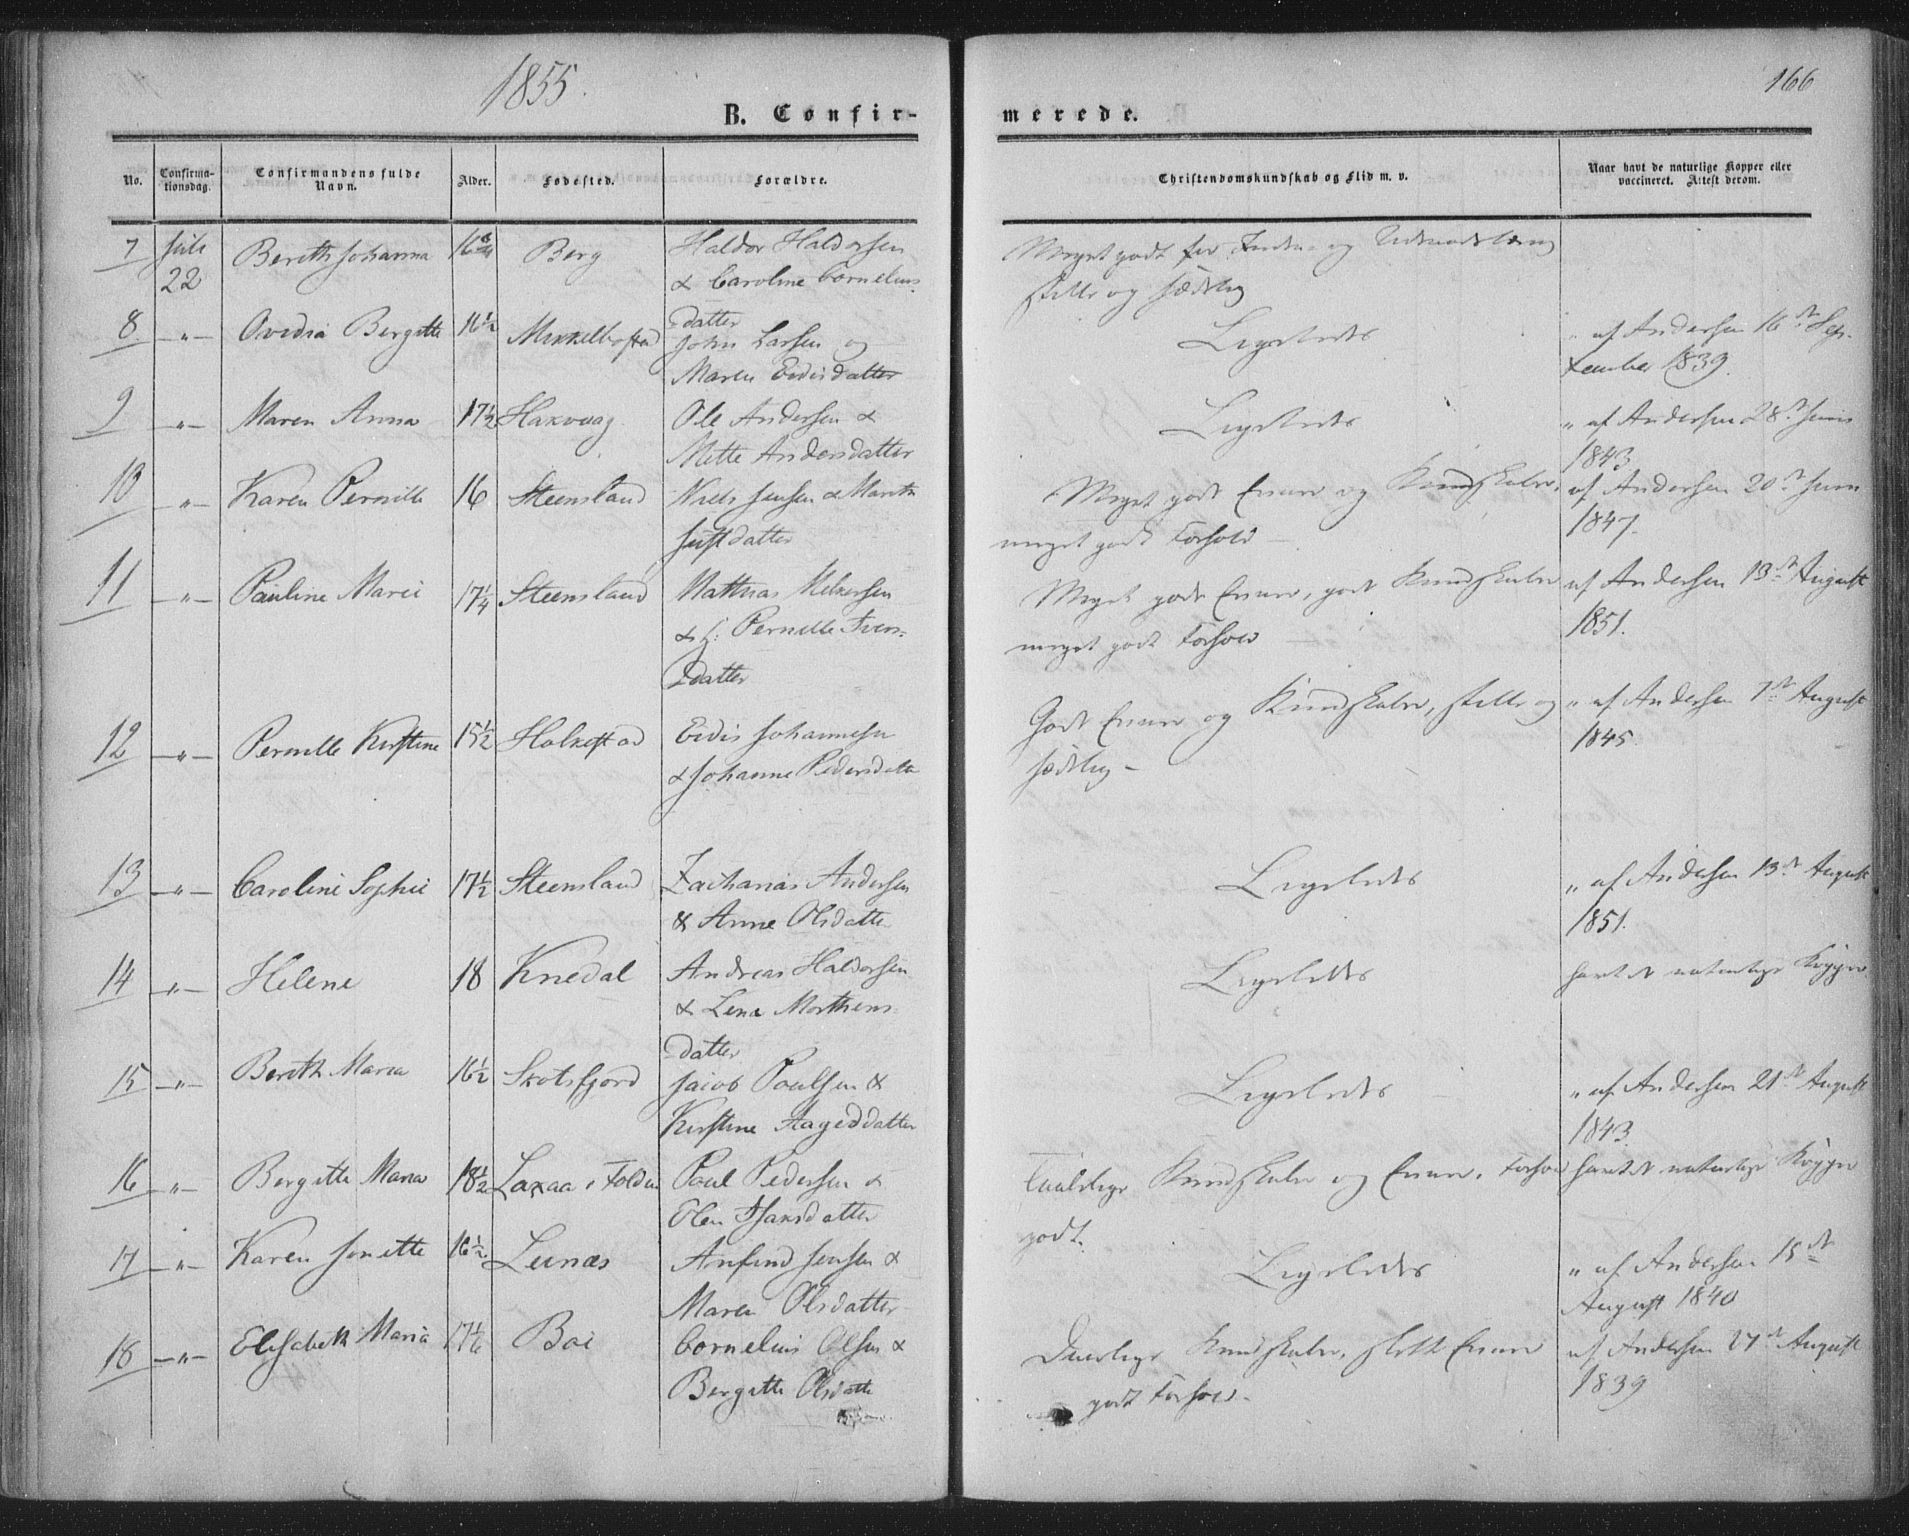 1855.
166
B. Confir-
merede.
No.
Confirma-
tionsdag.
Confirmandens fulde
Navn.
Alder.
Fødested.
Forældre.
Christendomskundskab og Flid m. v.
Naar havt de naturlige Kopper eller
vaccineret. Attest derom.
7 Juli 22 Bereth Johanna 16 3/4 Berg Haldor Haldorsen
& Caroline Cornelius-
datter
Meget godt for og
stille og sædelig
8. -„- Ovedia Bergitte 16 1/2 Mikkelbostad John Larsen og
Maren Eidisdatter
Ligeledes
„ af Andersen 16de Sep-
tember 1839.
9 -„- Maren Anna 17 1/2 Haxvaag Ole Andersen &
Mette Andersdatter
Ligeledes
„ af Andersen 28de Juni
1843
10 -„- Karen Pernille 16 Steensland Niels Jensen & Marith
Justdatter
Meget godt Evner og Kundskaber,
meget godt Forhold -
af Andersen 20de Juni
1847.
11 -„- Pauline Marie 17 1/4 Steensland Mathias Melkersen
& h: Pernille Ivers-
datter
Meget gode Evner, godt Kundskaber
meget godt Forhold
af Andersen 13de August
1851.
12 -„- Pernille Kirstine 15 1/2 Holkestad Eidis Johannesen
& Johanne Pedersdatter
Godt Evner og Kundskaber, stille og
sædelig -
„ af Andersen 7de August
1845.
13 -„- Caroline Sophie 17 1/2 Steensland Zacharias Andersen
& Anne Olsdatter
Ligeledes
„ af Andersen 13de August
1851.
14 -„- Helene 18 Knedal Andreas Haldorsen
& Lena Morthens-
datter
Ligeledes
havt de naturlige Kopper
15 -„- Bereth Maria 16 1/2 Skotsfjord Jacob Paulsen &
Kirstine Aageddatter
Ligeledes
„ af Andersen 21de August
1843.
16 -„- Bergitte Maria 18 1/2 Laxaa i Folden Paul Pedersen &
Elen Hansdatter
Taalelige Kundskaber og Evner, Forhold
godt.
havt de naturlige Kopper
17 -„- Karen Jonette 16 1/2 Leinæs Anfind Jensen &
Maren Olsdatter
Ligeledes
„ af Andersen 15de
August 1840
18 -„- Elisabeth Maria 17 1/6 Boe Cornelius Olsen &
Bergitte Olsdatter
Daarlige Kundskaber, slette Evner
godt Forhold -
af Andersen 27de August
1839